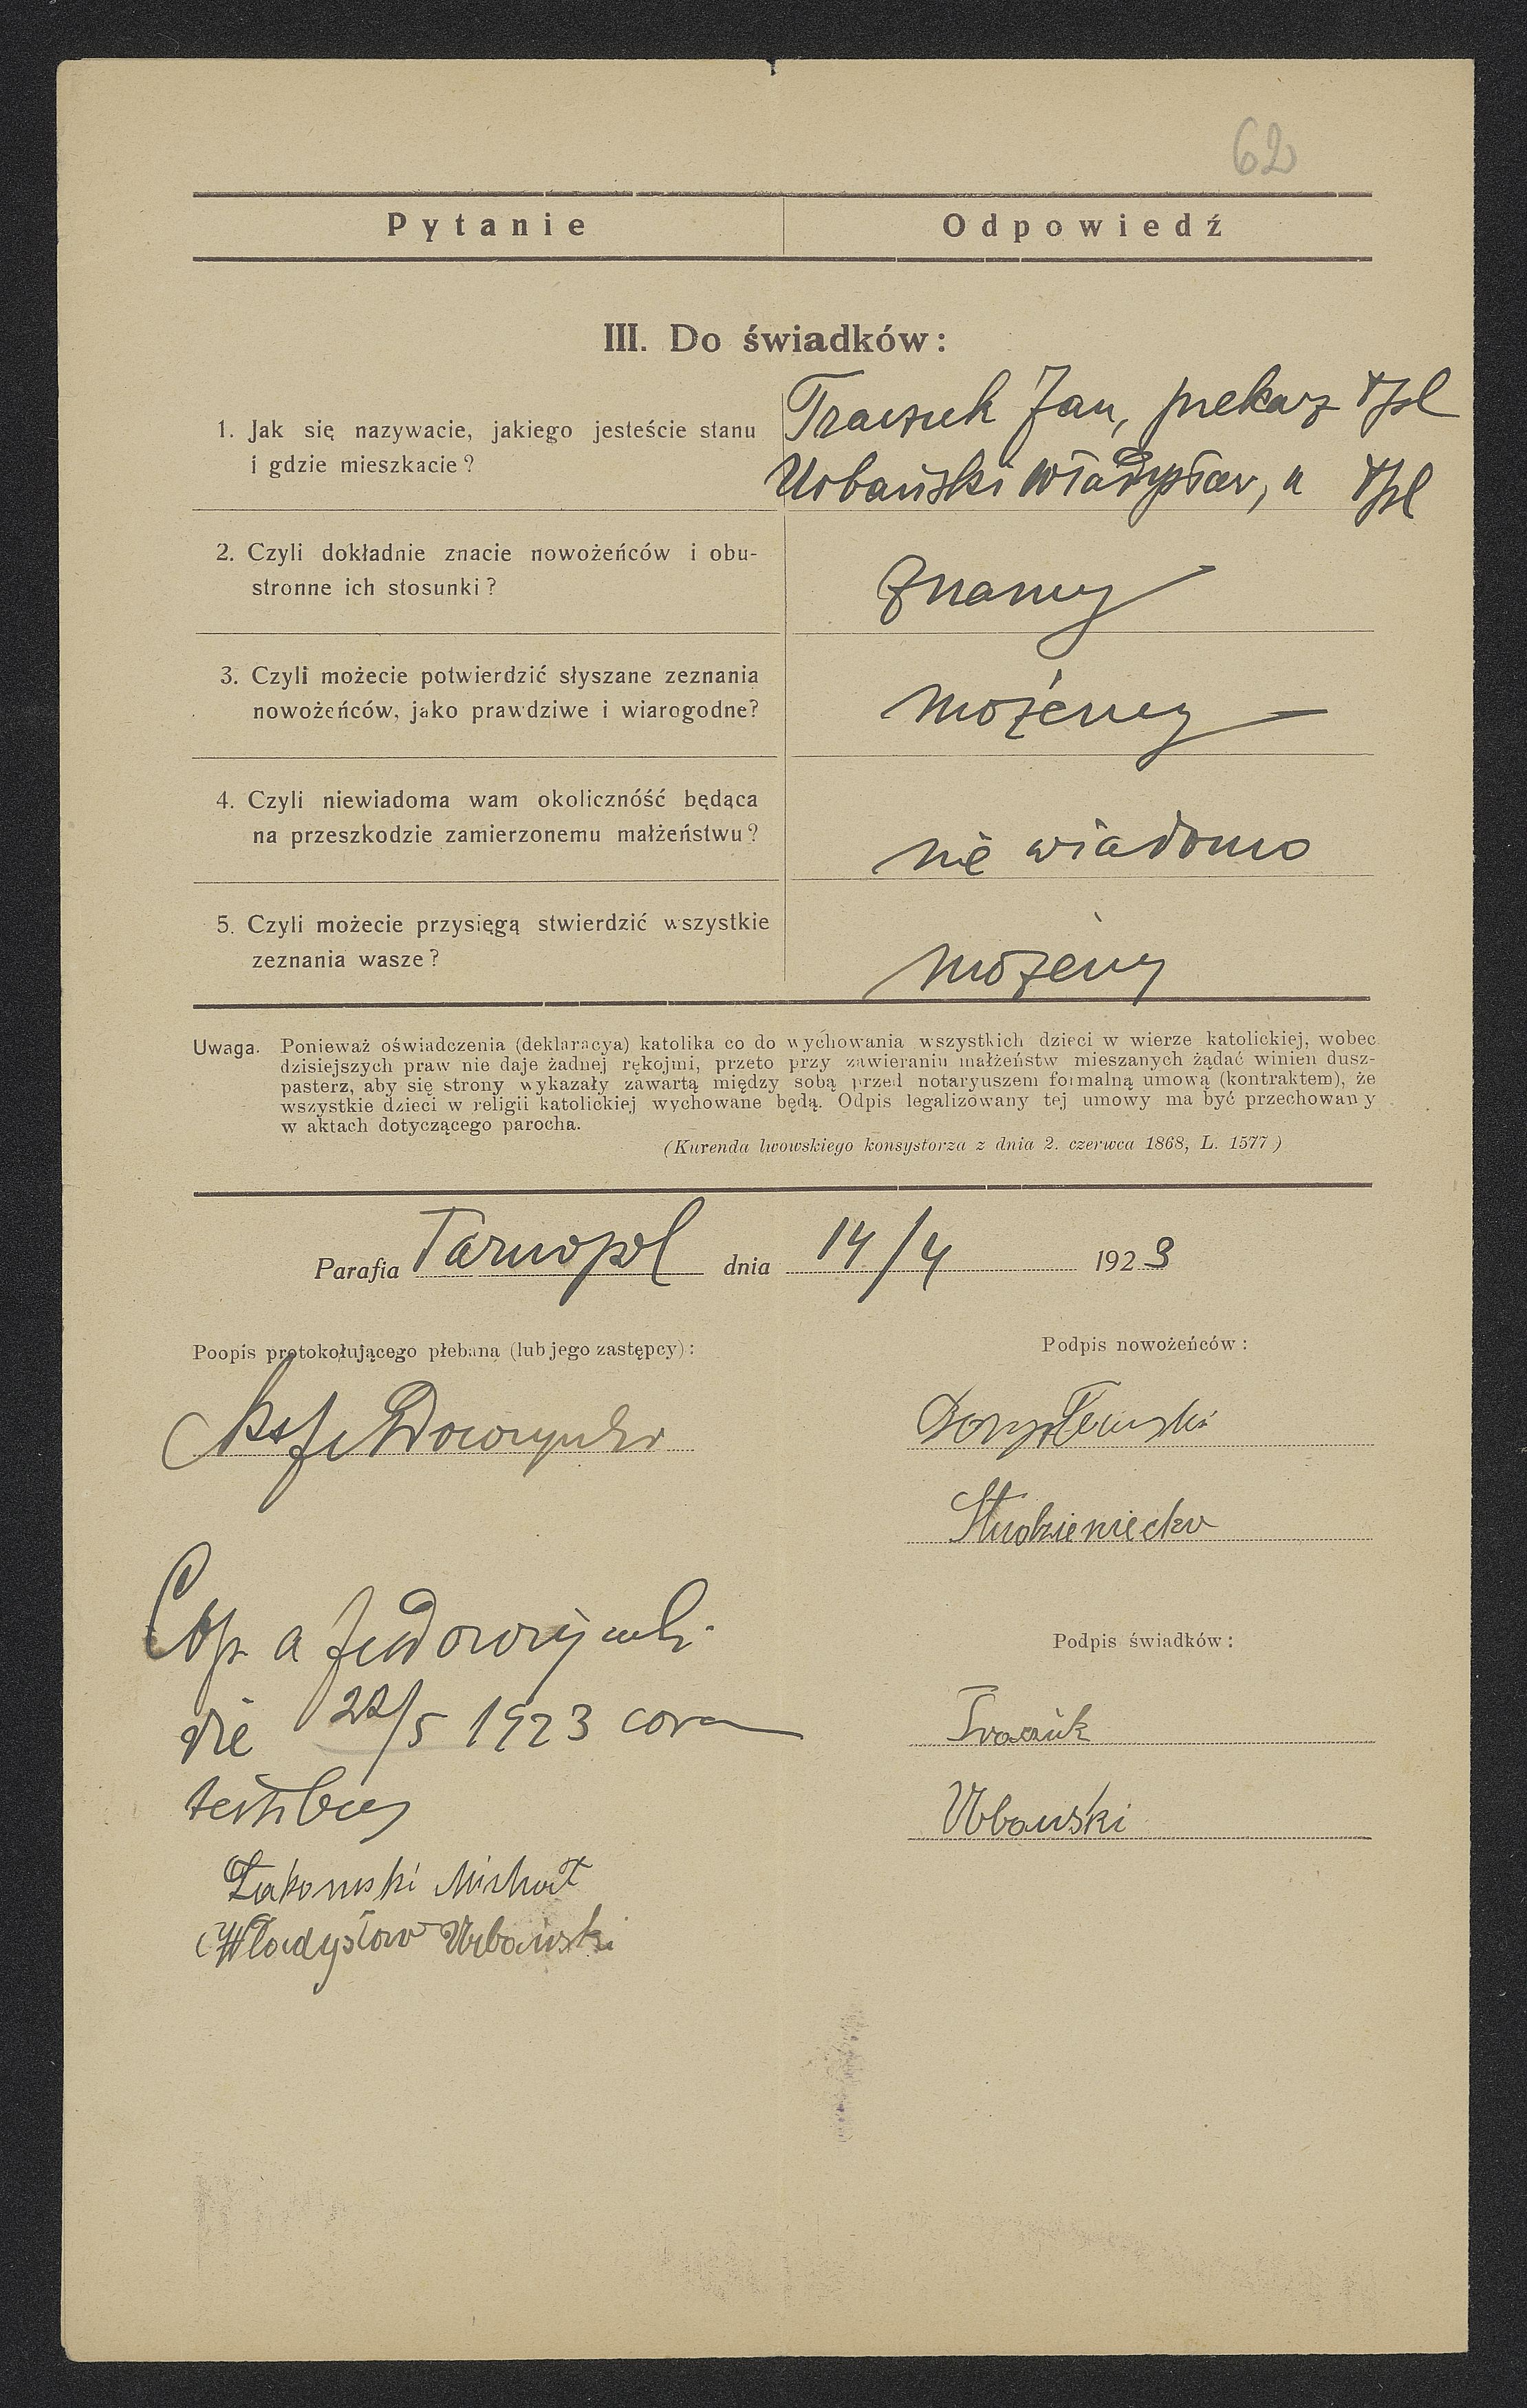 62
Pytanie Odpowiedź
III. Do świadków:
1. Jak się nazywacie, jakiego jesteście stanu
i gdzie mieszkacie?
Jan, piekarz Tpl
Urbański Władysław, " Tpl
2. Czyli dokładnie znacie nowożeńców i obu-
stronne ich stosunki?
Znamy
3. Czyli możecie potwierdzić słyszane zeznania
nowożeńców, jako prawdziwe i wiarogodne?
możemy
4. Czyli niewiadoma wam okolicznóść będąca
na przeszkodzie zamierzonemu małżeństwu?
nie wiadomo
5. Czyli możecie przysięgą stwierdzić wszystkie
zeznania wasze?
możemy
Uwaga. Ponieważ oświadczenia (deklaracya) katolika co do wychowania wszystkich dzieci w wierze katolickiej, wobec
dzisiejszych praw nie daje żadnej rękojmi, przeto przy zawieraniu małżeństw mieszanych żądać winien dusz-
pasterz, aby się strony wykazały zawartą między sobą przed notaryuszem formalną umową (kontraktem), że
wszystkie dzieci w religii katolickiej wychowane będą. Odpis legalizowany tej umowy ma być przechowany
w aktach dotyczącego parocha.
(Kurenda lwowskiego konsystorza z dnia 2. czerwca 1868, L. 1577)
Parafia Tarnopol dnia 14/4 1923
Poopis protokołującego płebana (lub jego zastępcy):
Podpis nowożeńców:
Studzieniecka
Cop. a
die 22/5 1923 coram
testibus
Podpis świadków:
Traczuk
Urbański
Michał
Władysław Urbański